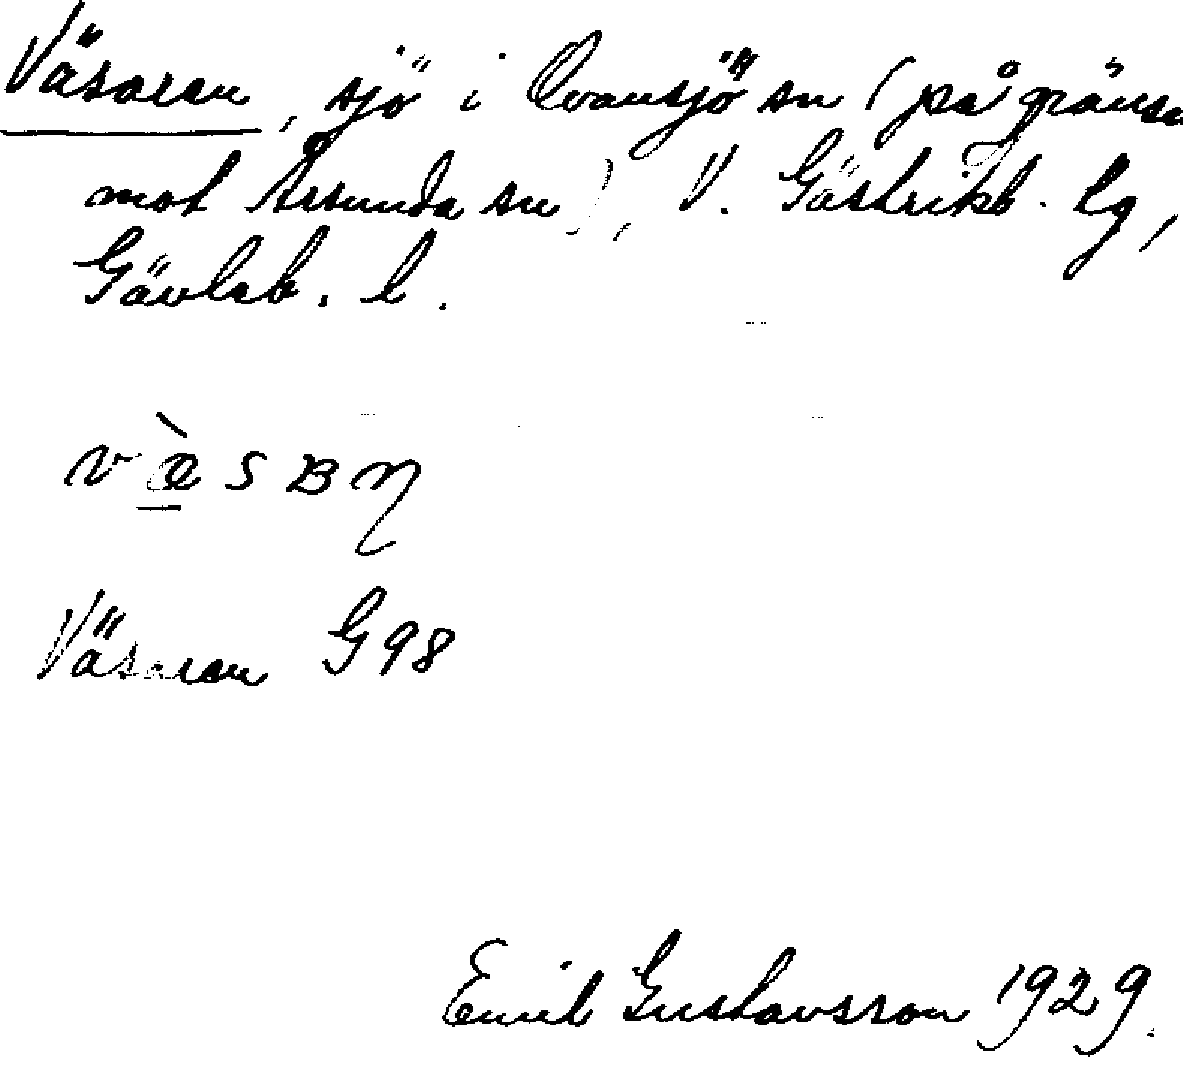 Väsaren, sjö i Ovansjö sn (på gränsen
mot Årsunda sn), V. Gästrikl. tg,
Gävleb. l.
væ̀sʙɳ
Väsaren G98
Emil Gustavsson 1929.